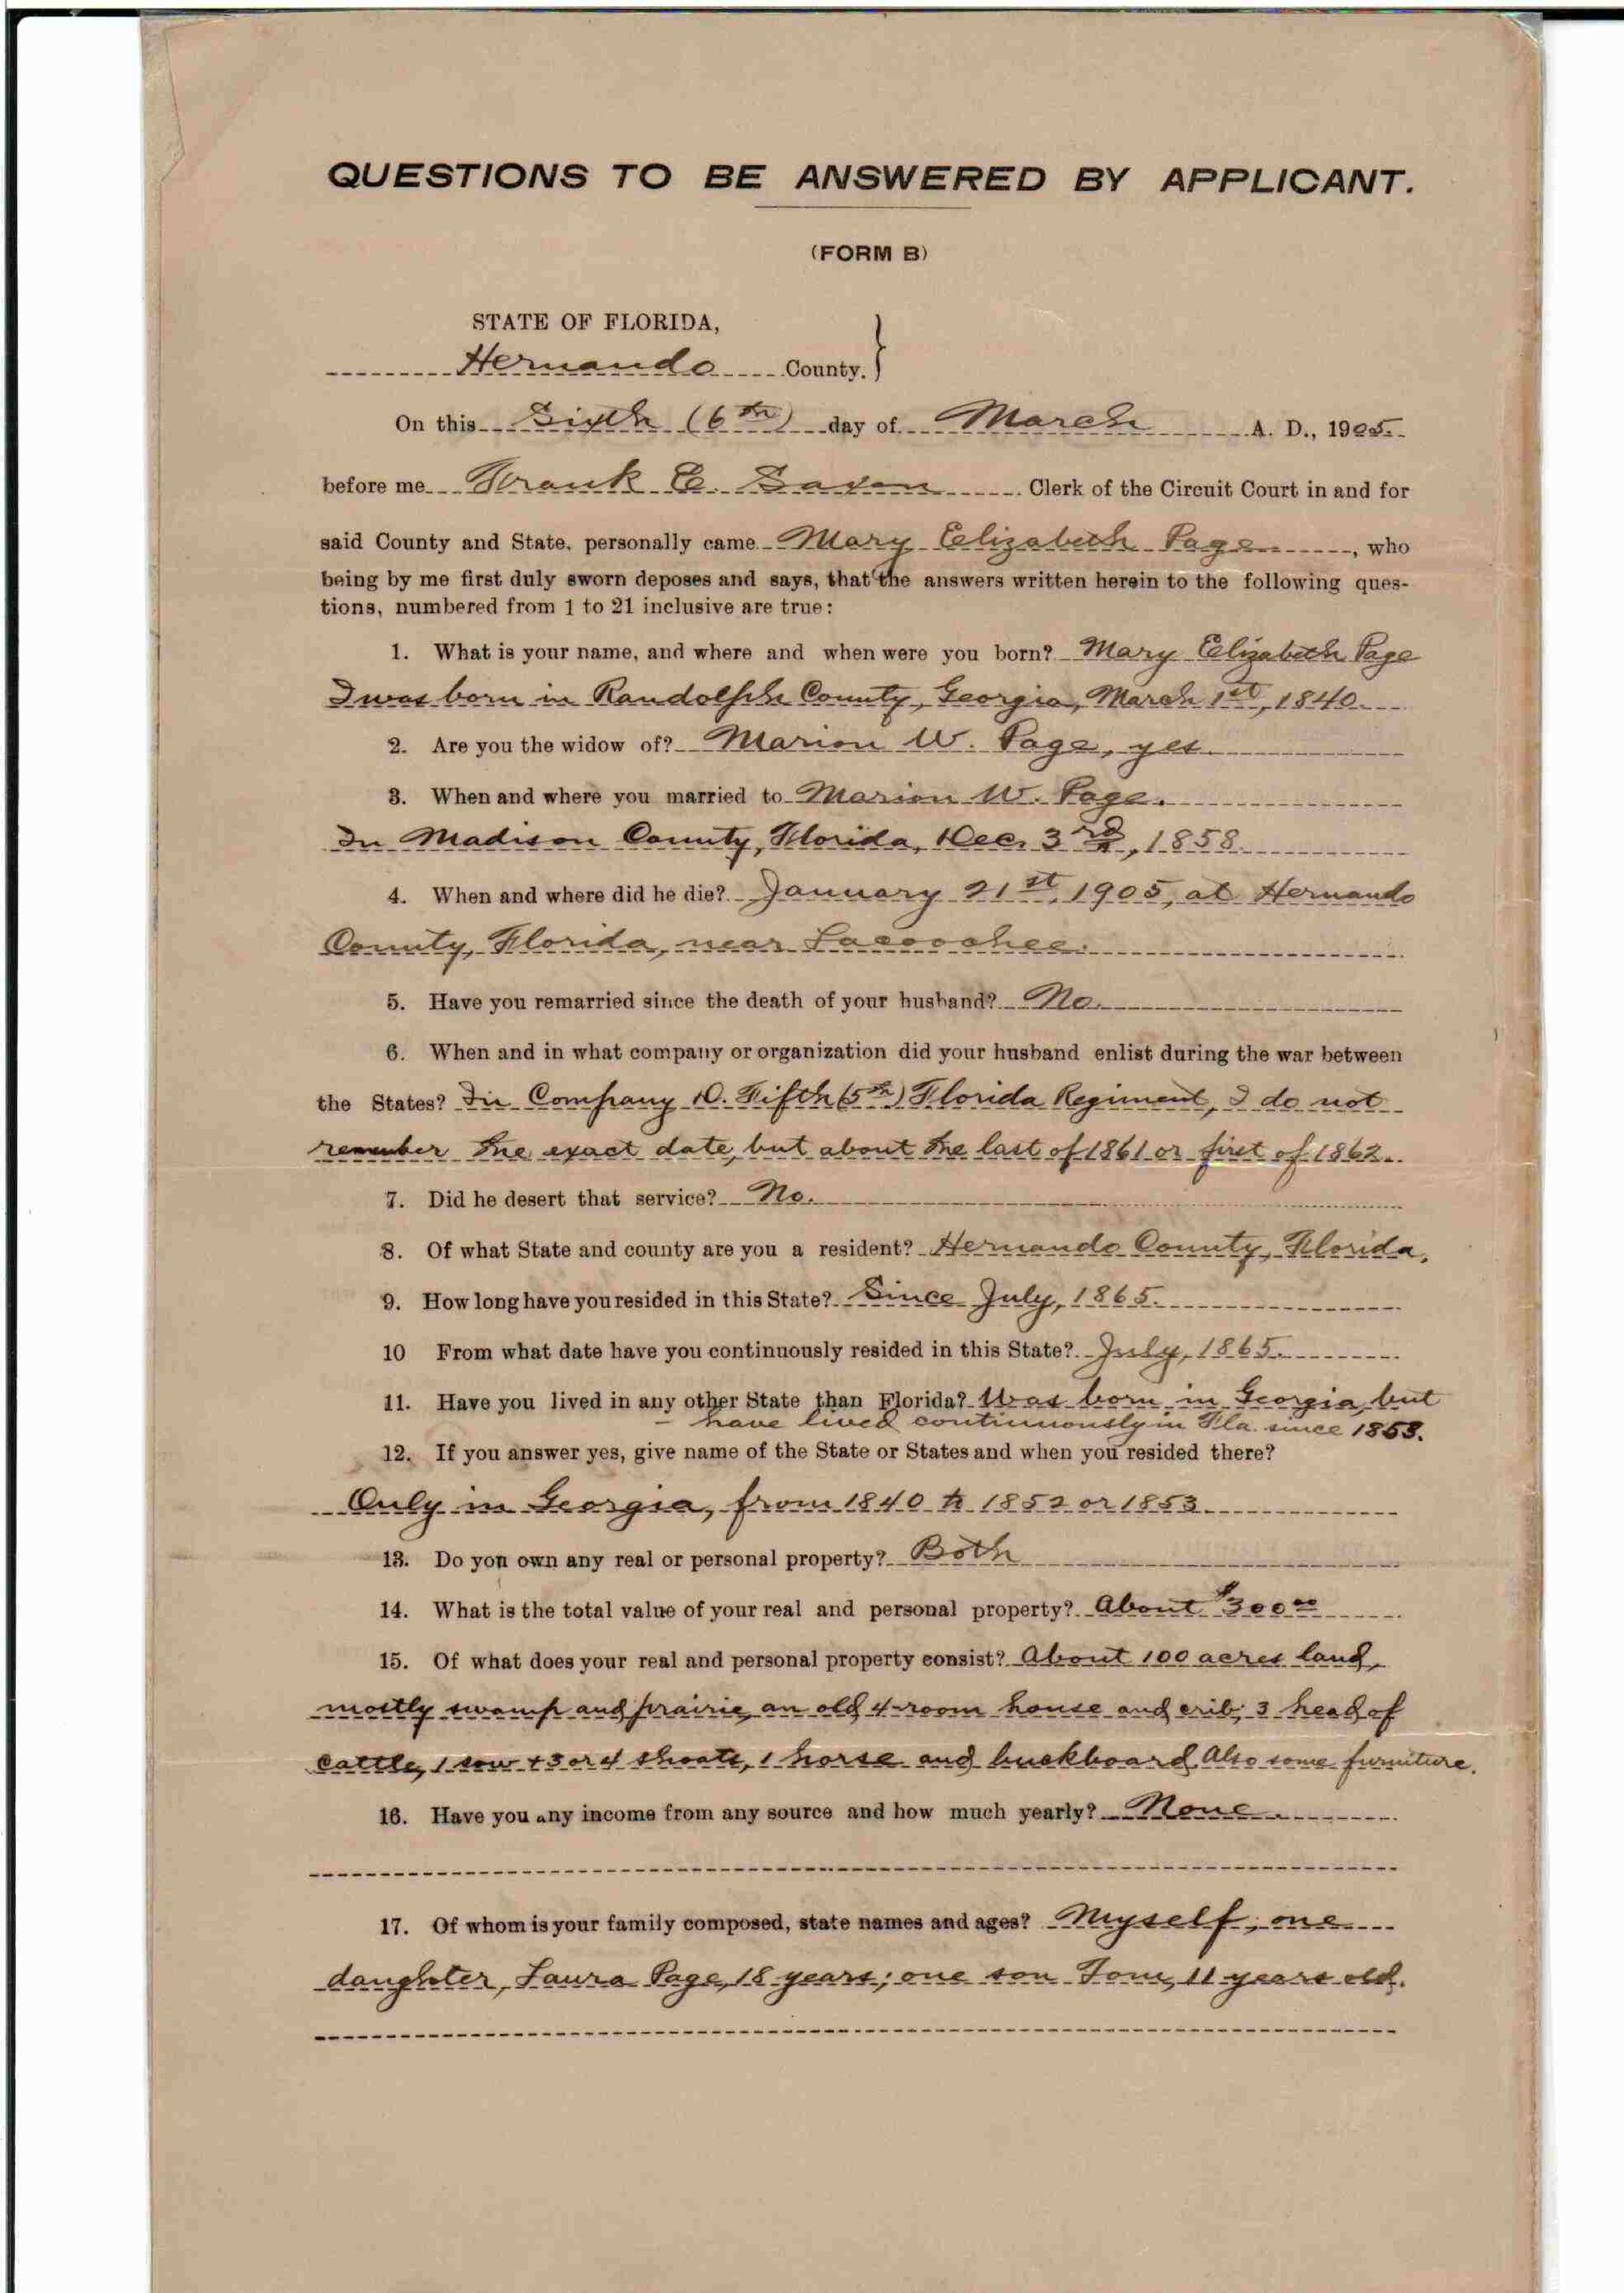 QUESTIONS TO BE ANSWERED BY APPLICANT.
(FORM B)
STATE OF FLORIDA,
Hernando County.
On this Sixth (6th) day of March A. D., 1905.
before me Frank E. Saxon Clerk of the Circuit Court in and for
said County and State, personally came Mary Elizabeth Page, who
being by me first duly sworn deposes and says, that the answers written herein to the following ques-
tions, numbered from 1 to 21 inclusive are true:
1. What is your name, and where and when were you born? Mary Elizabeth Page
I was born in Randolph County, Georgia, March 1st, 1840.
2. Are you the widow of? Marion W. Page, yes.
3. When and where you married to Marion W. Page.
In Madison County, Florida, Dec. 3rd, 1858.
4. When and where did he die? January 21st, 1905, at Hernando
County, Florida, near Lacoochee.
5. Have you remarried since the death of your husband? No.
6. When and in what company or organization did your husband enlist during the war between
the States? In Company D. Fifth (5th) Florida Regiment, I do not
remember the exact date, but about the last of 1861 or first of 1862.
7. Did he desert that service? No.
8. Of what State and county are you a resident? Hernando County, Florida.
9. How long have you resided in this State? Since July, 1865.
10 From what date have you continuously resided in this State? July, 1865.
11. Have you lived in any other State than Florida? Was born in Georgia, but
have lived continuously in Fla. since 1853.
12. If you answer yes, give name of the State or States and when you resided there?
Only in Georgia, from 1840 to 1852 or 1853.
13. Do you own any real or personal property? Both
14. What is the total value of your real and personal property? About $300.00
15. Of what does your real and personal property consist? About 100 acres land,
mostly swamp and prairie, an old 4-room house and crib; 3 head of
cattle, 1 sow + 3 or 4 shoats, 1 horse and buckboard. Also some furniture.
16. Have you any income from any source and how much yearly? None.
17. Of whom is your family composed, state names and ages? Myself; one
daughter, Laura Page, 18 years; one son Tom, 11 years old.